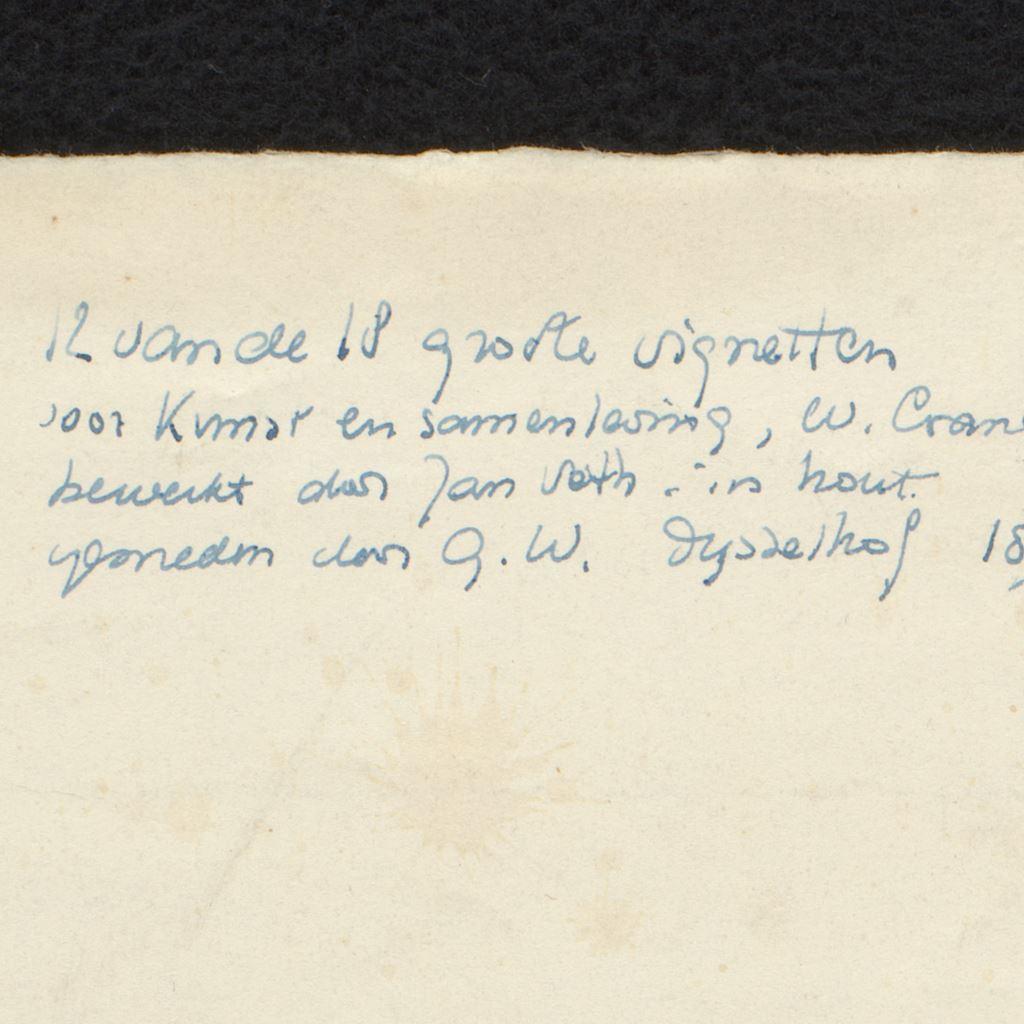 12 van de 18 grote vignetten
voor Kunst en samenleving, W. Cran
bewerkt door Jan Veth : in hout
gesneden door G.W. Dysselhof 18